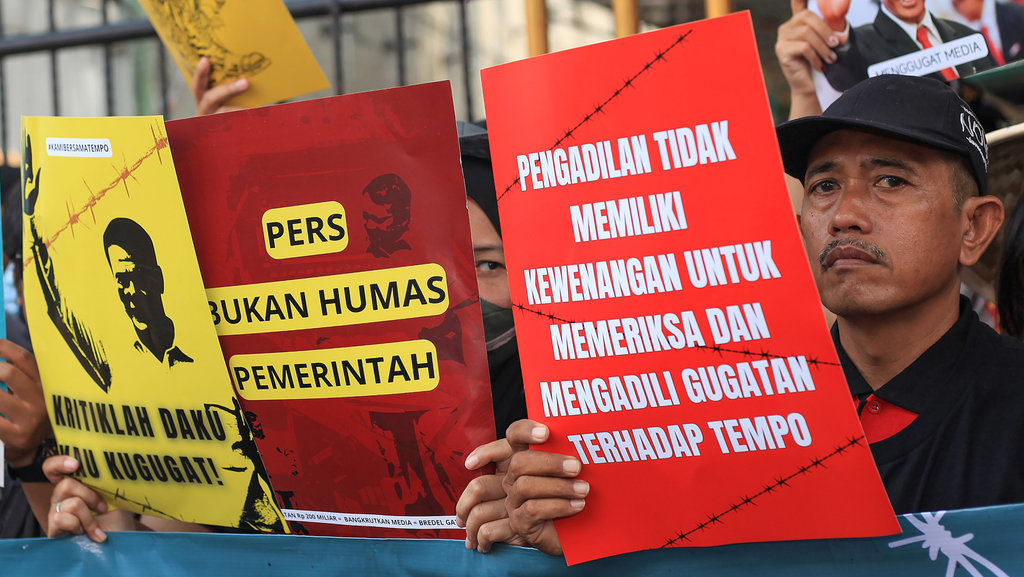 #KAMIBERSAMATEMPO
KRITIKLAH DAKU
KAU KUGUGAT!
PERS
BUKAN HUMAS
PEMERINTAH
TAN Rp 200 MILIAR = BANGKRUTKAN MEDIA = BREDEL GA
PENGADILAN TIDAK
MEMILIKI
KEWENANGAN UNTUK
MEMERIKSA DAN
MENGADILI GUGATAN
TERHADAP TEMPO
MENGGUGAT MEDIA